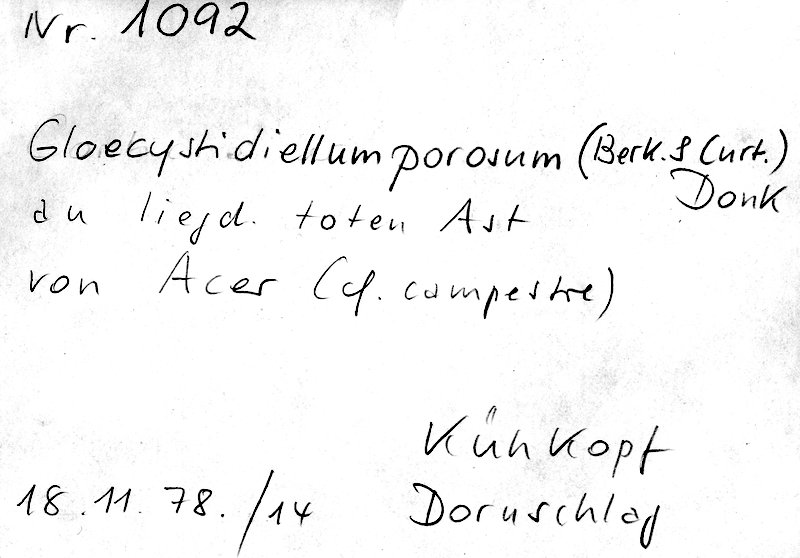 Nr. 1092
Gloecystidiellum porosum (Berk. & Curt.)
Donk
an liegd. toten Ast
von Acer (cf. campestre)
Kühkopf
18.11.78./14 Dornschlag